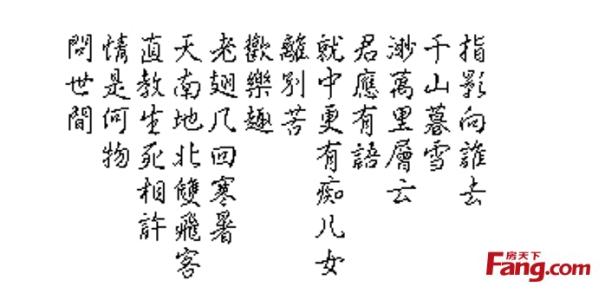 問世間
情是何物
直教生死相許
天南地北雙飛客
老翅几回寒暑
歡樂趣
離別苦
就中更有痴儿女
君應有語
渺萬里層云
千山暮雪
指影向誰去
房天下
Fang.com